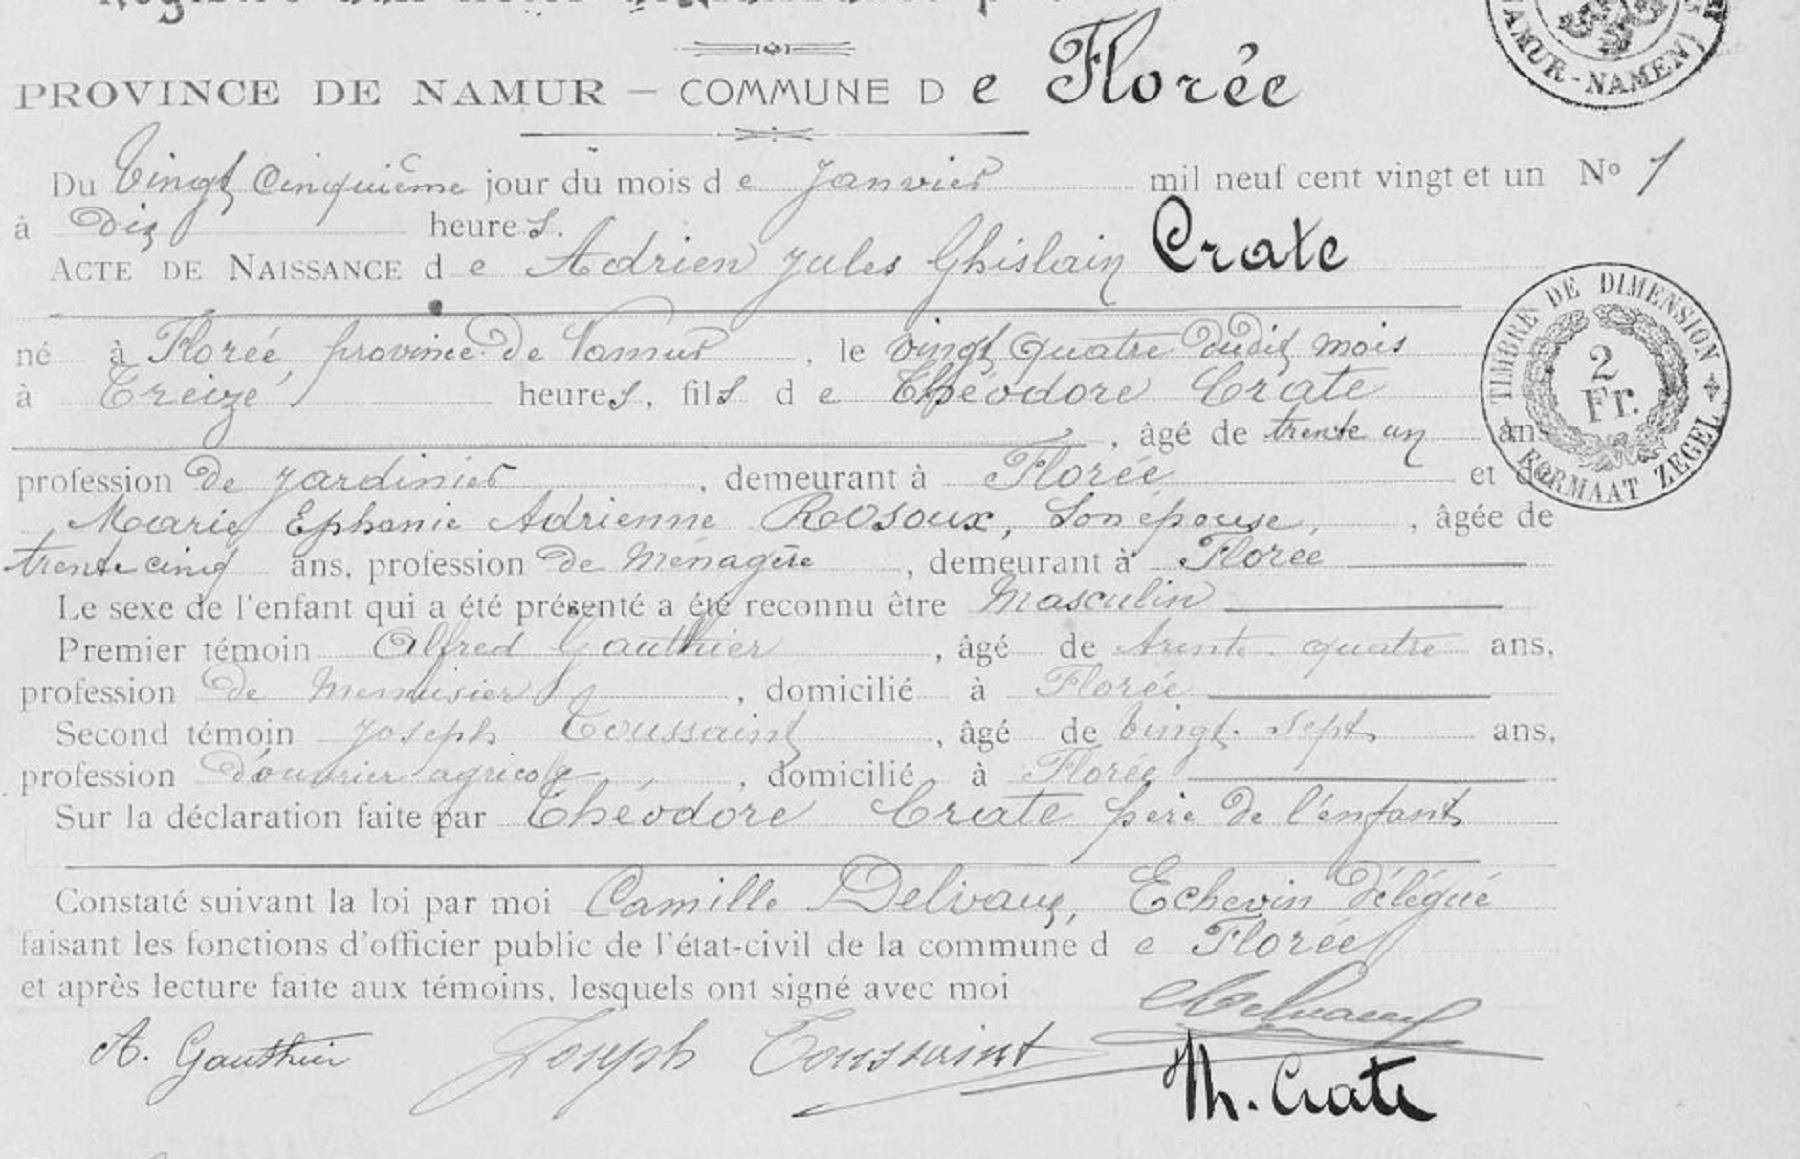 PROVINCE DE NAMUR — COMMUNE D e Florée
NAMUR - NAMEN
Du Vingt cinquième jour du mois d e Janvier mil neuf cent vingt et un No 1
à Dix heures.
ACTE DE NAISSANCE d e Adrien Jules Ghislain Crate
né à Florée, province de Namur, le vingt quatre dudit mois
à Treize heures, fils d e Théodore Crate
, âgé de trente un ans
TIMBRE DE DIMENSION
2
Fr.
FORMAAT ZEGEL
profession de jardinier, demeurant à Florée et de
Marie Ephanie Adrienne Rosoux, Son épouse, , âgée de
trente cinq ans, profession de Ménagère, demeurant à Florée
Le sexe de l'enfant qui a été présenté a été reconnu être Masculin
Premier témoin Alfred Gauthier, âgé de trente quatre ans,
profession de Menuisier, domicilié à Florée
Second témoin Joseph Toussaint, âgé de vingt-sept ans,
profession d'ouvrier agricole, domicilié à Florée
Sur la déclaration faite par Théodore Crate père de l'enfant
Constaté suivant la loi par moi Camille Delvaux, Echevin délégué
faisant les fonctions d'officier public de l'état-civil de la commune d e Florée
et après lecture faite aux témoins, lesquels ont signé avec moi
CDelvaux
A. Gauthier Joseph Toussaint
Th. Crate